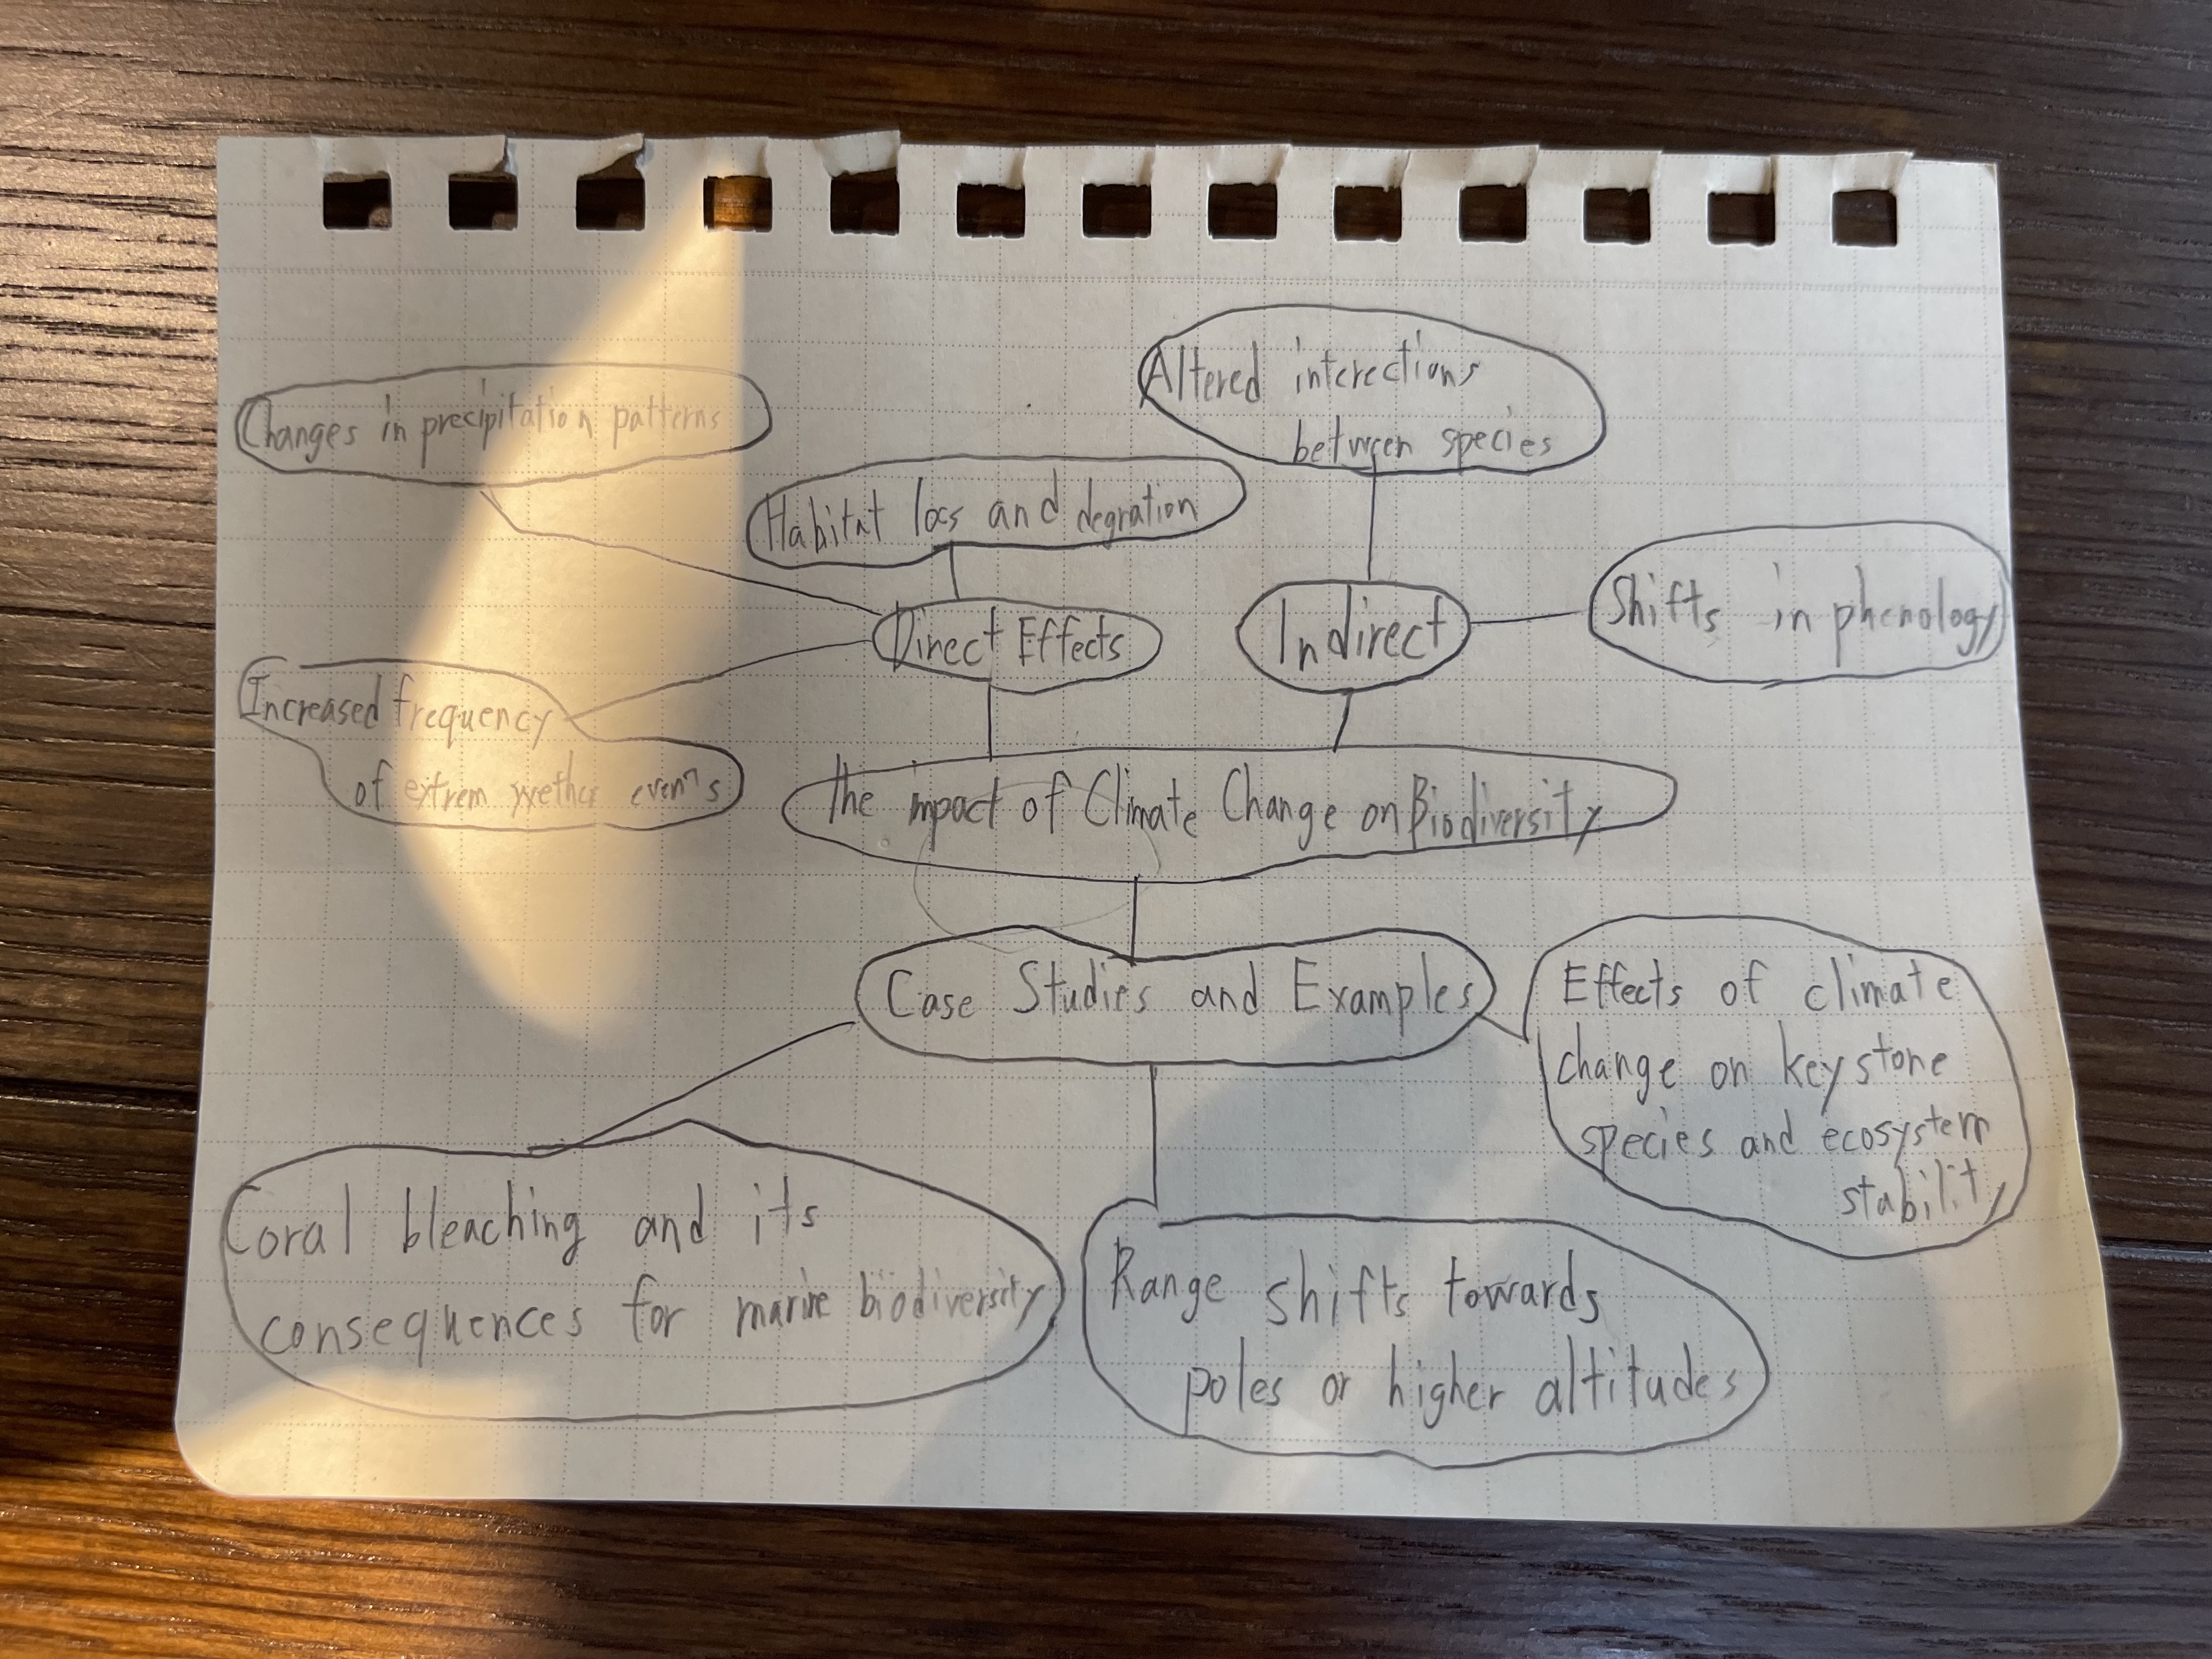 Altered interections
between species
Changes in precipitation patterns
Habitat loss and degration
Shifts in phenology
Direct Effects
Indirect
Increased frequency
of extrem wether events
The impact of Climate Change on Biodiversity
Case Studies and Examples
Effects of climate
change on keystone
species and ecosystem
stability
Coral bleaching and its
consequences for marine biodiversity
Range shifts towards
poles or higher altitudes